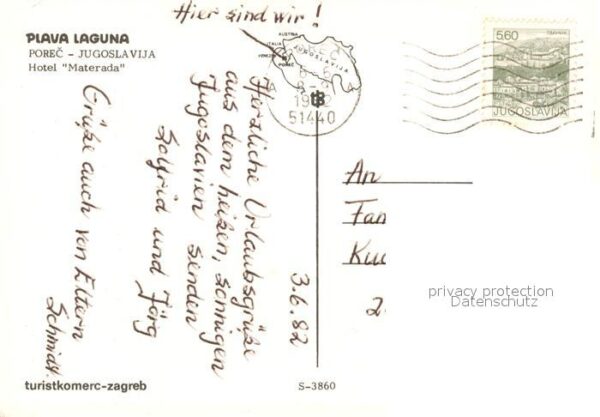 Hier sind wir!
PLAVA LAGUNA
POREČ - JUGOSLAVIJA
Hotel "Materada"
AUSTRIA
ITALIA
JUGOSLAVIJA
POREČ
51440
5.60
TRAVNIK
JUGOSLAVIJA
3.6.82
Herzliche Urlaubsgrüße
aus dem heißen, sonnigen
Jugoslavien senden
Solfrid und Jörg
Grüße auch von Eltern
Schmidt.
An
Fam
Kuc
2
privacy protection
Datenschutz
turistkomerc-zagreb
S-3860